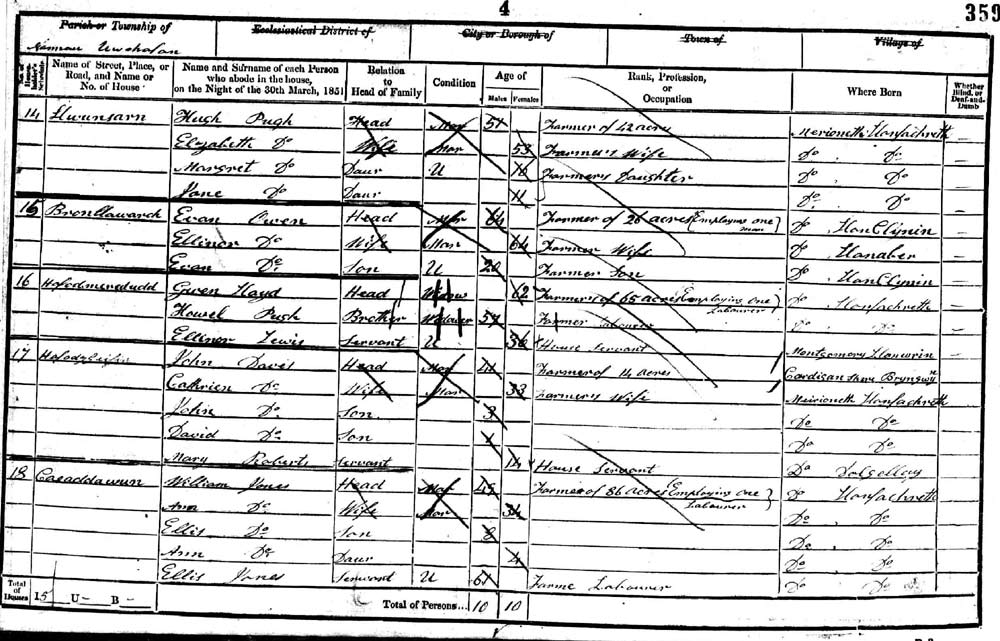 4
359
Parish or Township of
Ecclesiastical District of
City or Borough of
Town of
Village of
Name of Street, Place, or Road, and Name or No. of House
Name and Surname of each Person who abode in the house, on the Night of the 30th March, 1851
Relation to Head of Family
Condition
Age of
Males Females
Rank, Profession, or Occupation
Where Born
Whether Blind, or Deaf-and-Dumb
14 Hugh Pugh Head Mar Farmer of 42 acres Merioneth Llanfachreth
Elizabeth Do Wife Mar 53 Farmer's Wife Do Do
Margret Do Daur U Farmers Daughter Do Do
Jane Do Daur 11 Do Do
15 Bronllawarch Evan Owen Head Mar 64 Farmer of 26 acres Employing one man Do LlanClynin
Ellinor Do Wife Mar 64 Farmer Wife Do Llanaber
Evan Do Son U 20 Farmer Son Do LlanClynin
16 Hafodmeredudd Gwen Lloyd Head Widow 62 Farmers of 65 acres Employing one Labourer Do Llanfachreth
Howel Pugh Brother Widower Farmer Labourer Do Do
Ellinor Lewis Servant U 36 House Servant Montgomery Llanwrin
17 John Davis Head Mar 41 Farmer of 14 acres Cardigan Shire
Cathrien Do Wife Mar 33 Farmers Wife Meirioneth Llanfachreth
John Do Son 3 Do Do
David Do Son 1 Do Do
Mary Roberts Servant 14 House Servant Do Dolgelley
18 Caeaddawun William Jones Head Mar 45 Farmer of 86 acres Employing one Labourer Do Llanfachreth
Ann Do Wife Mar 34 Do Do
Ellis Do Son 8 Do Do
Ann Do Daur 4 Do Do
Ellis Jones Servant U 61 Farme Labourer Do Do
Total of Houses 15 U— B— Total of Persons... 10 10